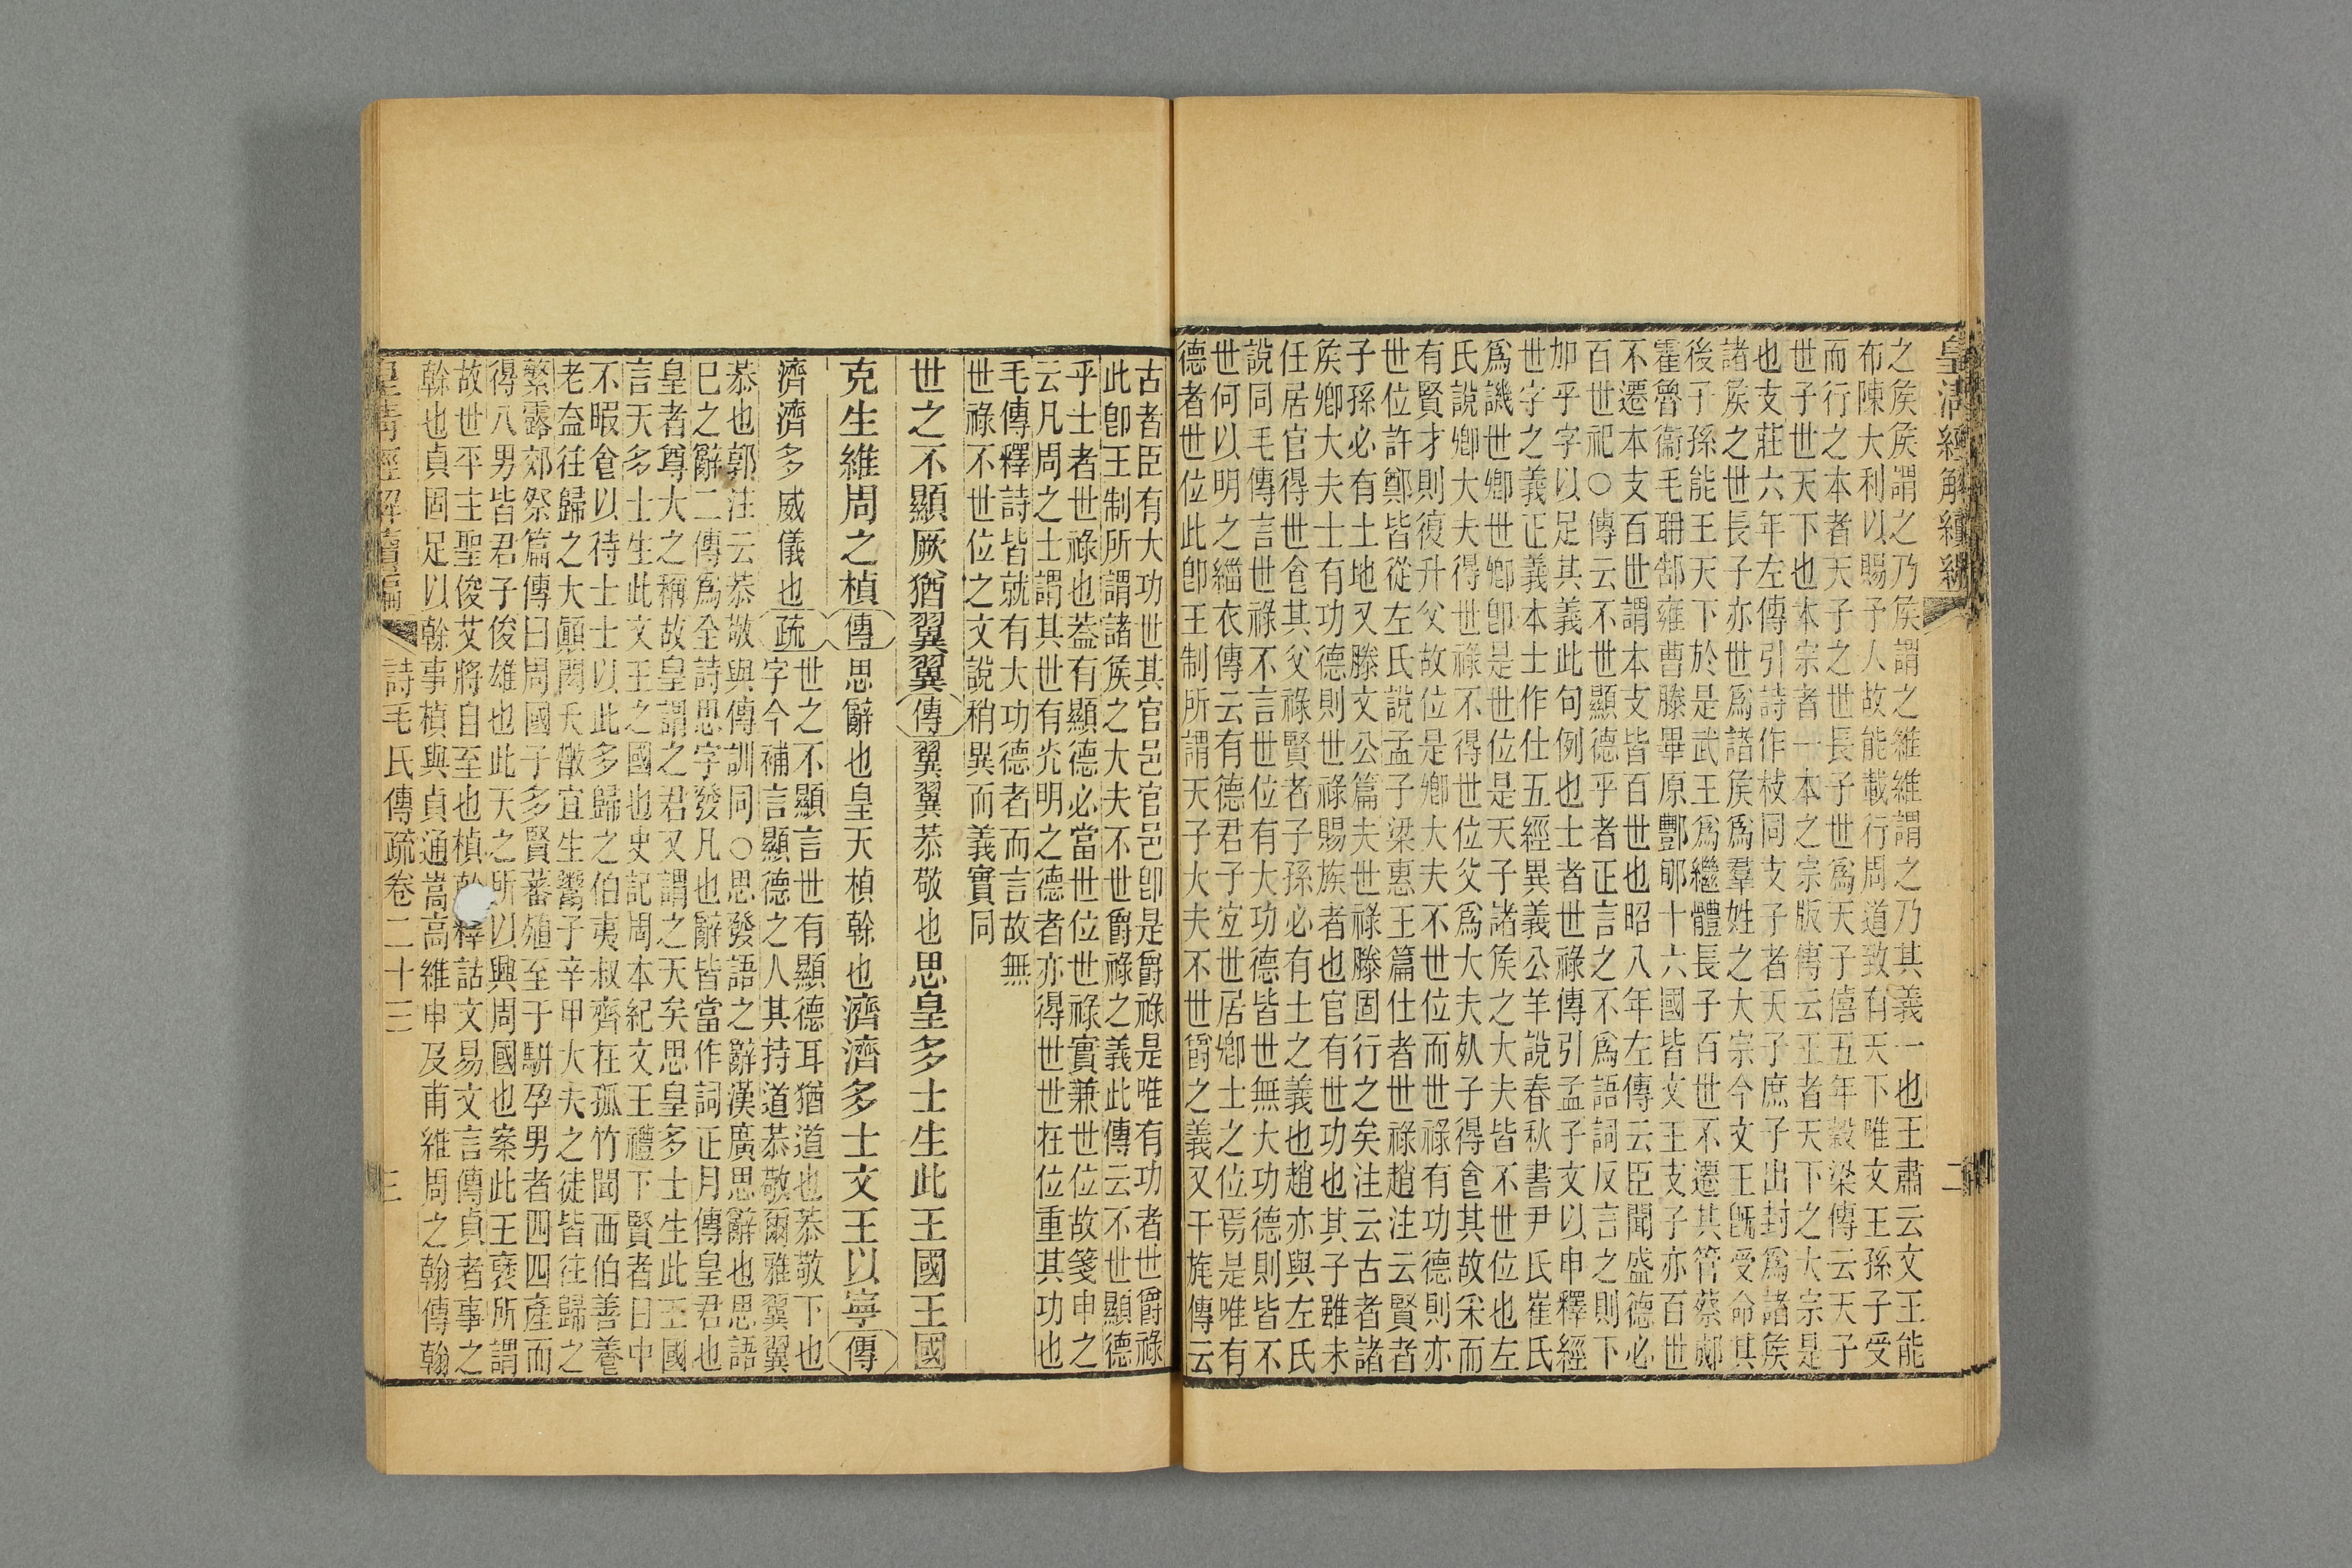 皇清經解續編
二
之矦矦謂之乃矦謂之維維謂之乃其義一也王肅云文王能
布陳大利以賜予人故能載行周道致有天下唯文王孫子受
而行之本者天子之世長子世爲天子僖五年穀梁傳云天子
世子世天下也本宗者一本之宗版傳云王者天下之大宗是
也支莊六年左傳引詩作枝同支子者天子庶子出封爲諸矦
諸矦之世長子亦世爲諸矦爲羣姓之大宗今文王旣受命其
後子孫能王天下於是武王爲繼體長子百世不遷其管蔡郕
霍魯衞毛聃郜雍曹滕畢原酆郇十六國皆文王支子亦百世
不遷本支百世謂本支皆百世也昭八年左傳云臣聞盛德必
百世祀○傳云不世顯德乎者正言之不爲語詞反言之則下
加乎字以足其義此句例也士者世祿傳引孟子文以申釋經
世字之義正義本士作仕五經異義公羊說春秋書尹氏崔氏
爲譏世卿世卿卽是世位是天子諸矦之大夫皆不世位也左
氏說卿大夫得世祿不得世位父爲大夫死子得食其故采而
有賢才則復升父故位是卿大夫不世位而世祿有功德則亦
世位許鄭皆從左氏說孟子梁惠王篇仕者世祿趙注云賢者
子孫必有土地又滕文公篇夫世祿滕固行之矣注云古者諸
矦卿大夫士有功德則世祿賜族者也官有世功也其子雖未
任居官得世食其父祿賢者子孫必有土之義也趙亦與左氏
說同毛傳言世祿不言世位有大功德皆世無大功德則皆不
世何以明之緇衣傳云有德君子宐世居卿士之位焉是唯有
德者世位此卽王制所謂天子大夫不世爵之義又干旄傳云
古者臣有大功世其官邑官邑卽是爵祿是唯有功者世爵祿
此卽王制所謂諸矦之大夫不世爵祿之義此傳云不世顯德
乎士者世祿也蓋有顯德必當世位世祿實兼世位故箋申之
云凡周之士謂其世有光明之德者亦得世世在位重其功也
毛傳釋詩皆就有大功德者而言故無
世祿不世位之文說稍異而義實同
世之不顯厥猶翼翼傳翼翼恭敬也思皇多士生此王國王國
克生維周之楨傳思辭也皇天楨榦也濟濟多士文王以寧傳
濟濟多威儀也疏世之不顯言世有顯德耳猶道也恭敬下也
字今補言顯德之人其持道恭敬爾雅翼翼
恭也郭注云恭敬與傳訓同○思發語之辭漢廣思辭也思語
巳之辭二傳爲全詩思字發凡也辭皆當作詞正月傳皇君也
皇者尊大之稱故皇謂之君又謂之天矣思皇多士生此王國
言天多士生此文王之國也史記周本紀文王禮下賢者日中
不暇食以待士士以此多歸之伯夷叔齊在孤竹聞西伯善養
老盍往歸之大顚閎夭散宜生鬻子辛甲大夫之徒皆往歸之
繁露郊祭篇傳曰周國子多賢蕃殖至于駢孕男者四四產而
得八男皆君子俊雄也此天之所以興周國也案此王襃所謂
故世平主聖俊艾將自至也楨榦釋詁文易文言傳貞者事之
榦也貞固足以榦事楨與貞通嵩高維申及甫維周之翰傳翰
皇清經解續編
詩毛氏傳疏卷二十三
三